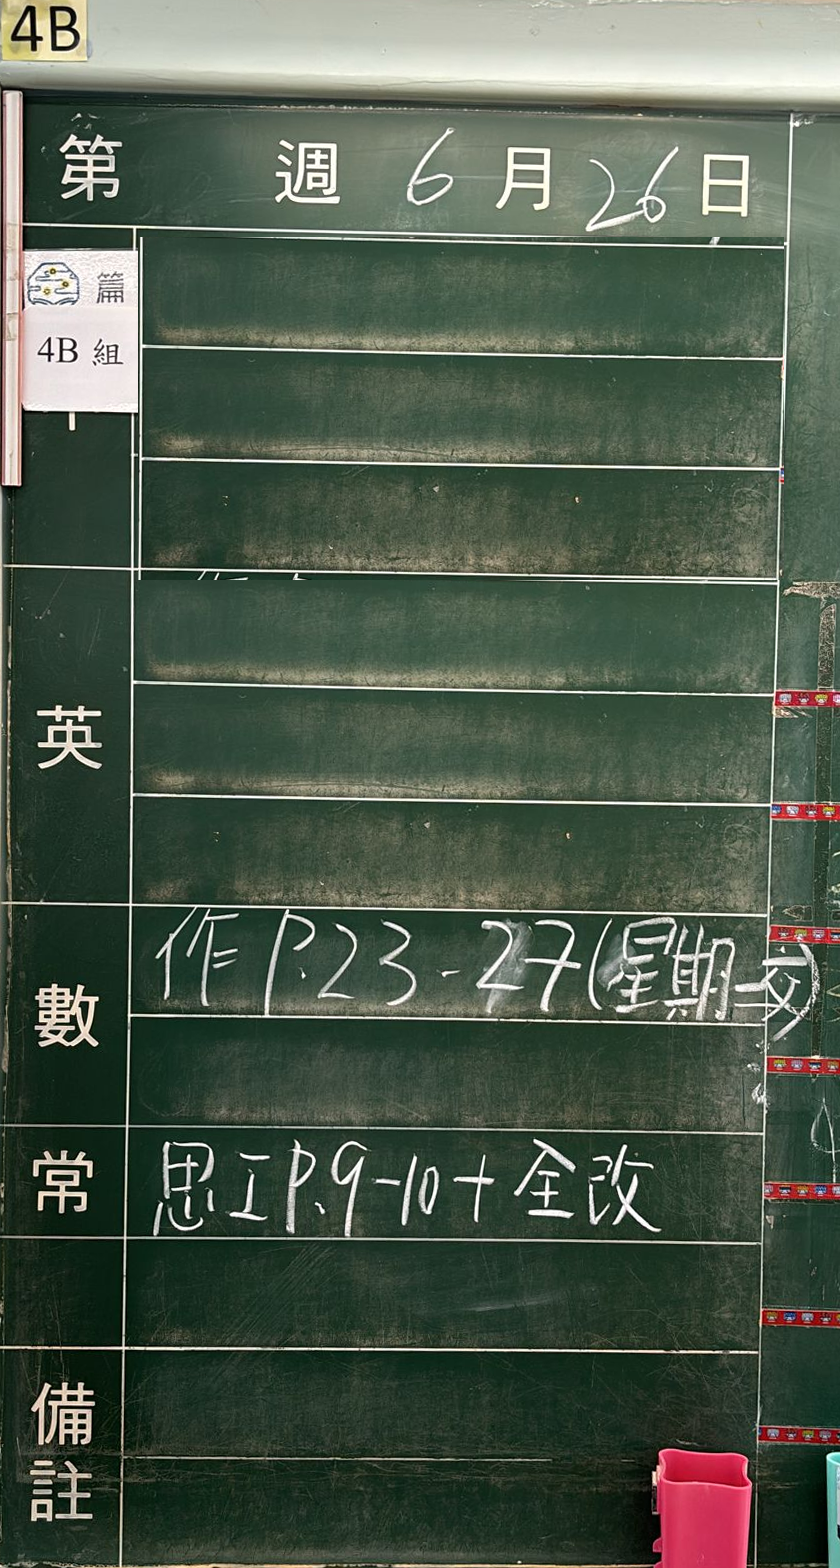 4B
第 週 6 月 26 日
篇
4B 組
英
數 作 P.23-27(星期一交)
常 思工P.9-10+全改
備註